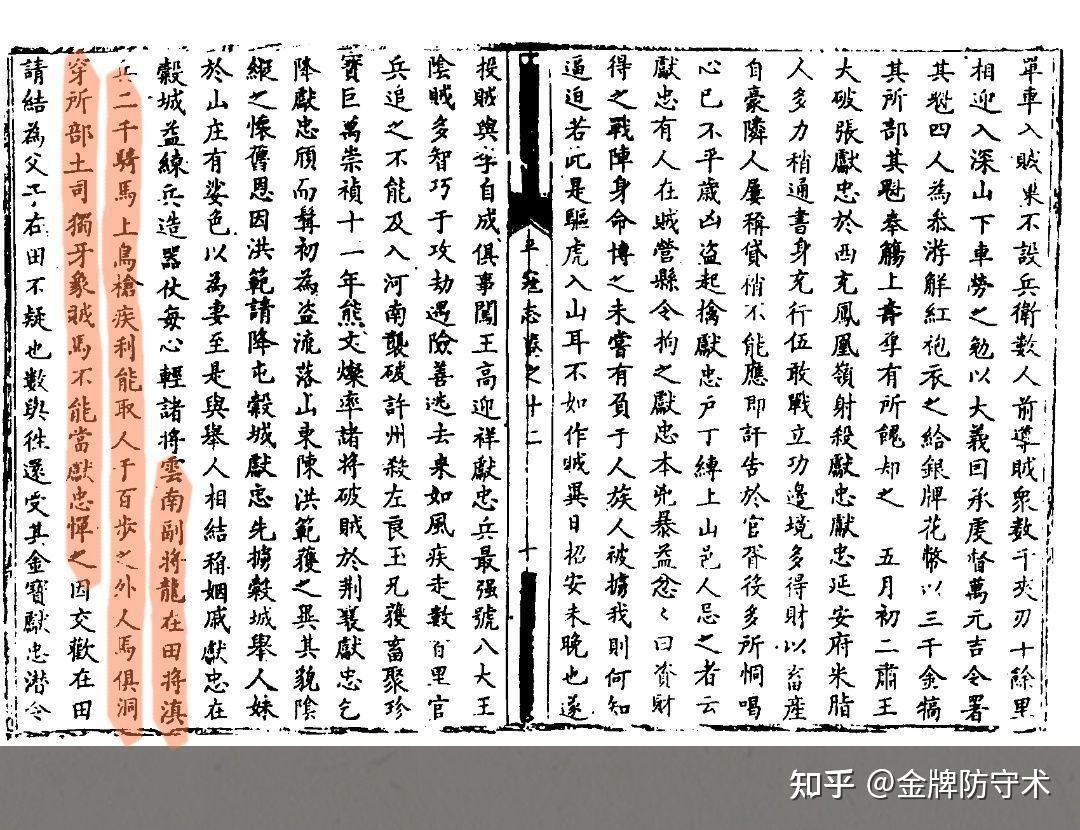 單車入賊巢不設兵衛數人前導賊衆數千夾刃十餘里
相迎入深山下車勞之勉以大義回承虔督萬元吉令署
其魁四人為叅游解紅袍衣之給銀牌花幣以三千金犒
其所部其魁奉觴上壽宰有所餽却之　五月初二肅王
大破張獻忠於西充鳳凰嶺射殺獻忠獻忠延安府米脂
人多力稍通書身充行伍敢戰立功邊境多得財以畜座
自豪隣人屢稱貸稍不能應即訐告於官胥役多所恫喝
心已不平歲凶盜起擒獻忠戶丁縛上山邑人忌之者云
獻忠有人在賊營縣令拘之獻忠本兇暴益忿〻曰資財
得之戰陣身命博之未嘗有負于人族人被擄我則何知
逼迫若此是驅虎入山耳不如作賊異日招安未晚也遂
卷之十二
十
投賊與李自成俱事闖王高迎祥獻忠兵最强號八大王
陰賊多智巧于攻劫遇險善逃去來如風疾走數百里官
兵追之不能及入河南襲破許州殺左良玉兄獲畜聚珍
寶巨萬崇禎十一年熊文燦率諸將破賊於荆襄獻忠乞
降獻忠頎而髯初為盜流落山東陳洪範獲之異其貌陰
縱之懷舊恩因洪範請降屯穀城獻忠先擄穀城舉人妹
於山庄有娑色以為妻至是與舉人相結稱姻戚獻忠在
穀城益練兵造器仗每心輕諸將雲南副將龍在田將滇
兵二千騎馬上鳥槍疾利能取人于百步之外人馬俱洞
穿所部土司獨牙象賊馬不能當獻忠憚之因交歡在田
請結為父子右田不疑也數與徃還受其金寶獻忠潜令
知乎 @金牌防守术